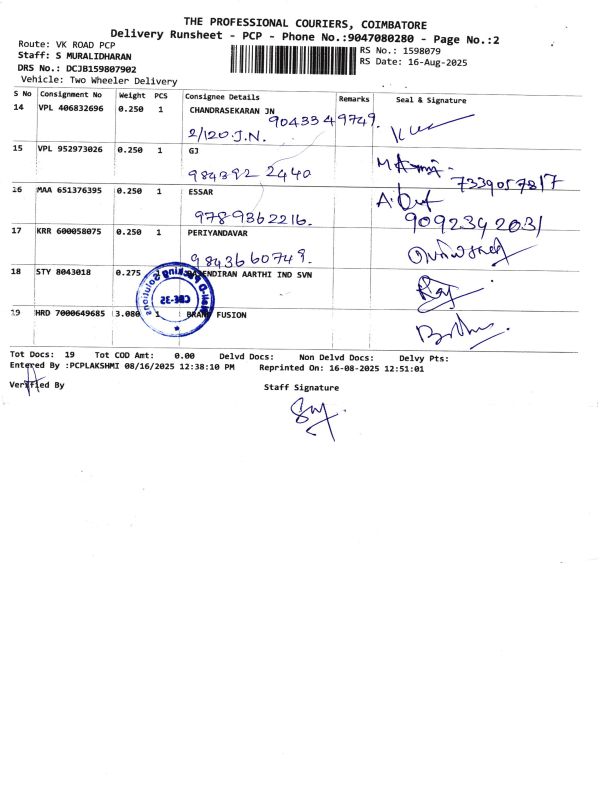 THE PROFESSIONAL COURIERS, COIMBATORE
Delivery Runsheet - PCP - Phone No.:9047080280 - Page No.:2
Route: VK ROAD PCP
Staff: S MURALIDHARAN
DRS No.: DCJB159807902
Vehicle: Two Wheeler Delivery
RS No.: 1598079
RS Date: 16-Aug-2025
S No Consignment No Weight PCS Consignee Details Remarks Seal & Signature
14 VPL 406832696 0.250 1 CHANDRASEKARAN JN
9043349749.
2/120.J.N.
15 VPL 952973026 0.250 1 GJ
984392 2440
7339057817
16 MAA 651376395 0.250 1 ESSAR
9789362216.
9092342031
17 KRR 600058075 0.250 1 PERIYANDAVAR
9843660749.
18 STY 8043018 0.275 RAJENDIRAN AARTHI IND SVN
CBE-35
19 HRD 7000649685 3.080 1 BRAND FUSION
Tot Docs: 19 Tot COD Amt: 0.00 Delvd Docs: Non Delvd Docs: Delvy Pts:
Entered By :PCPLAKSHMI 08/16/2025 12:38:10 PM Reprinted On: 16-08-2025 12:51:01
Verified By
Staff Signature